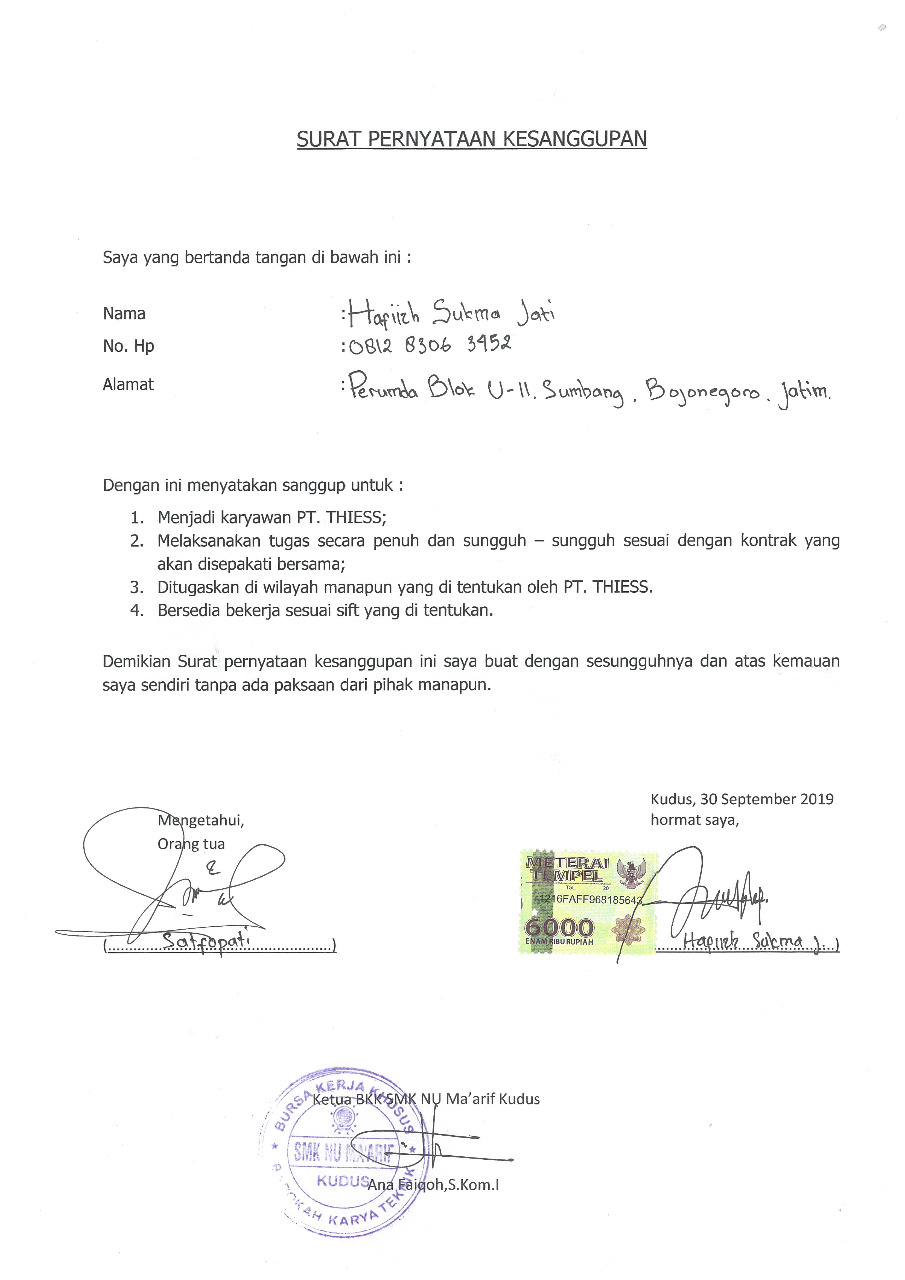 SURAT PERNYATAAN KESANGGUPAN
Saya yang bertanda tangan di bawah ini :
Nama : Hafiizh Sukma Jati
No. Hp : 0812 8306 3452
Alamat : Perumda Blok U-11. Sumbang, Bojonegoro, Jatim.
Dengan ini menyatakan sanggup untuk :
1. Menjadi karyawan PT. THIESS;
2. Melaksanakan tugas secara penuh dan sungguh – sungguh sesuai dengan kontrak yang
akan disepakati bersama;
3. Ditugaskan di wilayah manapun yang di tentukan oleh PT. THIESS.
4. Bersedia bekerja sesuai sift yang di tentukan.
Demikian Surat pernyataan kesanggupan ini saya buat dengan sesungguhnya dan atas kemauan
saya sendiri tanpa ada paksaan dari pihak manapun.
Kudus, 30 September 2019
Mengetahui,
hormat saya,
Orang tua
METERAI
TEMPEL
6000
ENAM RIBU RUPIAH
(Satropati)
Hafiizh Sukma J...)
BURSA KERJA KHUSUS
Ketua BKK SMK NU Ma'arif Kudus
SMK NU MA'ARIF
KUDUS
Ana Faiqoh,S.Kom.I
KARYA TEKNIK